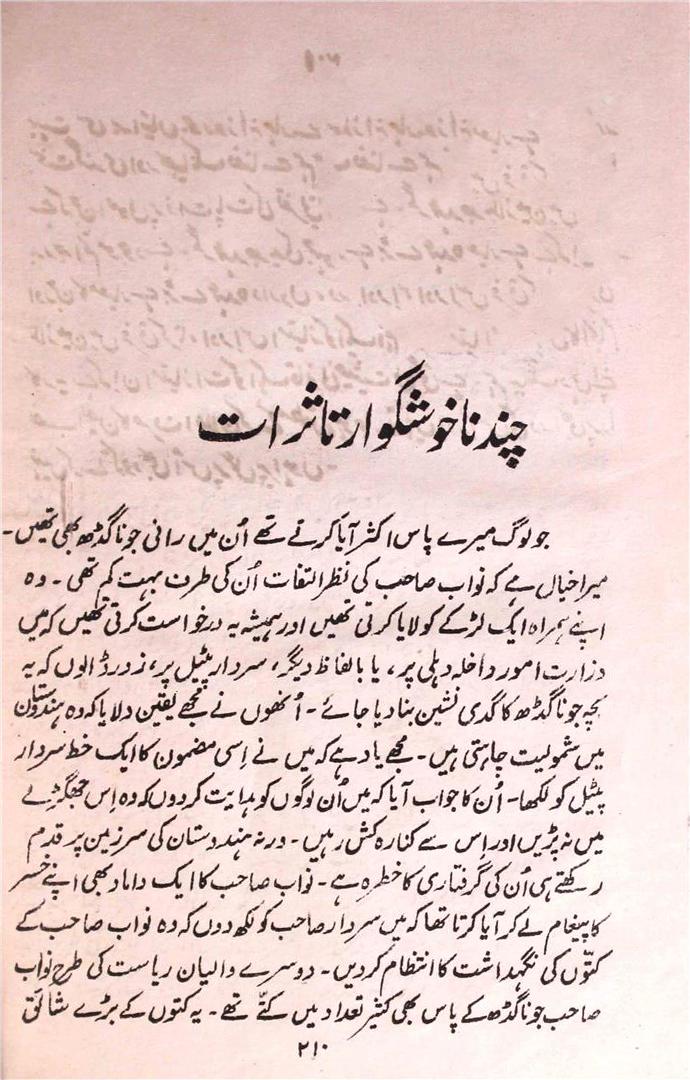 چند ناخوشگوار تاثرات
جو لوگ میرے پاس اکثر آیا کرتے تھے اُن میں رانی جونا گڈھ بھی تھیں۔
میرا خیال ہے کہ نواب صاحب کی نظر التفات اُن کی طرف بہت کم تھی۔ وہ
اپنے ہمراہ ایک لڑکے کو لایا کرتی تھیں اور ہمیشہ یہ درخواست کرتی تھیں کہ میں
وزارت امور داخلہ دہلی پر، یا بالفاظ دیگر، سردار پٹیل پر، زور ڈالوں کہ یہ
بچہ جونا گڈھ کا گدی نشین بنا دیا جائے۔ اُنھوں نے مجھے یقین دلایا کہ وہ ہندوستان
میں شمولیت چاہتی ہیں۔ مجھے یاد ہے کہ میں نے اِسی مضمون کا ایک خط سردار
پٹیل کو لکھا۔ اُن کا جواب آیا کہ میں اُن لوگوں کو ہدایت کر دوں کہ وہ اِس جھگڑے
میں نہ پڑیں اور اِس سے کنارہ کش رہیں۔ ورنہ ہندوستان کی سرزمین پر قدم
رکھتے ہی اُن کی گرفتاری کا خطرہ ہے۔ نواب صاحب کا ایک داماد بھی اپنے خسر
کا پیغام لے کر آیا کرتا تھا کہ میں سردار صاحب کو لکھ دوں کہ وہ نواب صاحب کے
کتّوں کی نگہداشت کا انتظام کر دیں۔ دوسرے والیان ریاست کی طرح نواب
صاحب جونا گڈھ کے پاس بھی کثیر تعداد میں کتّے تھے۔ یہ کتوں کے بڑے شائق
۲۱۰